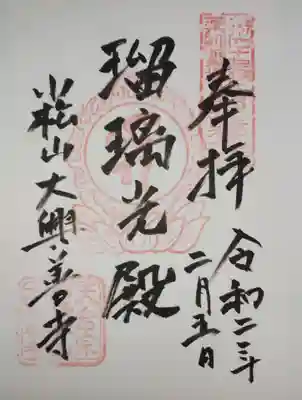 奉拝
令和二年
二月五日
瑠璃光殿
小松山大興善寺